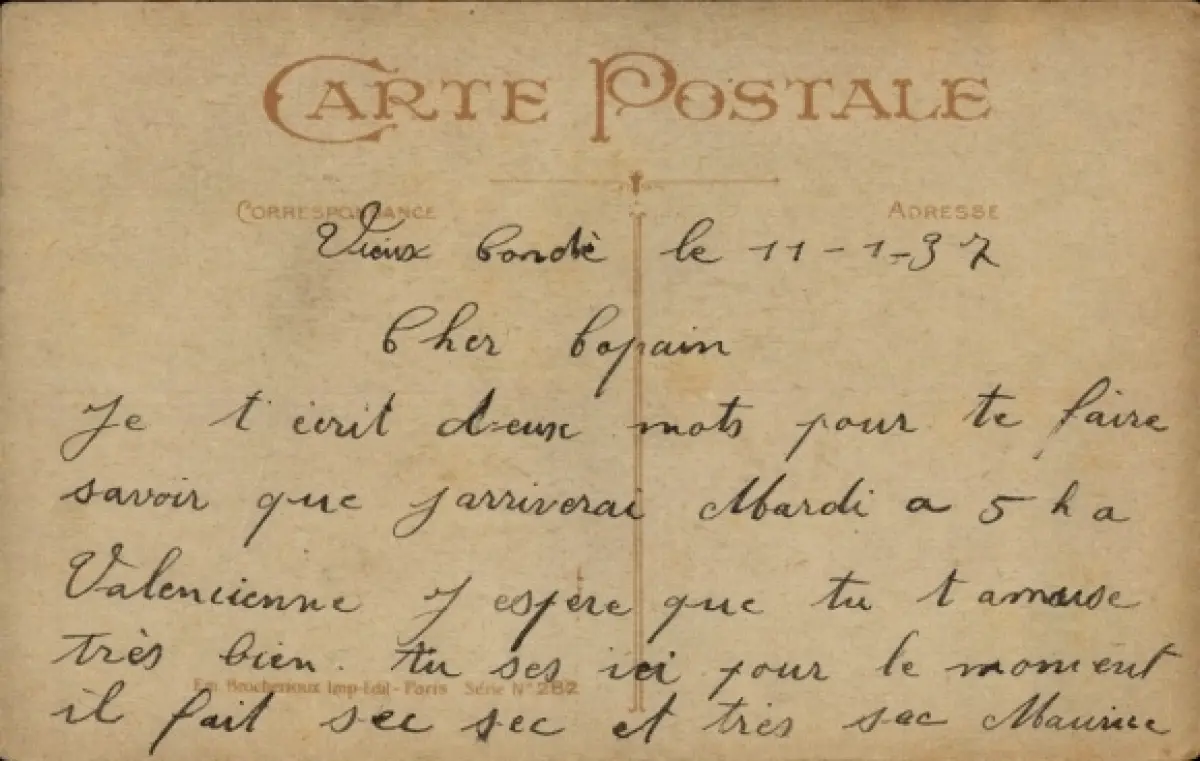 CARTE POSTALE
CORRESPONDANCE
ADRESSE
Vieux Condé le 11-1-37
Cher Copain
Je t'écrit deux mots pour te faire
savoir que jarriverai Mardi a 5 h a
Valencienne J espère que tu t amuse
très bien. tu ses ici pour le moment
Imp-Edit-Paris Série N° 282
il fait sec sec et très sec Maurice